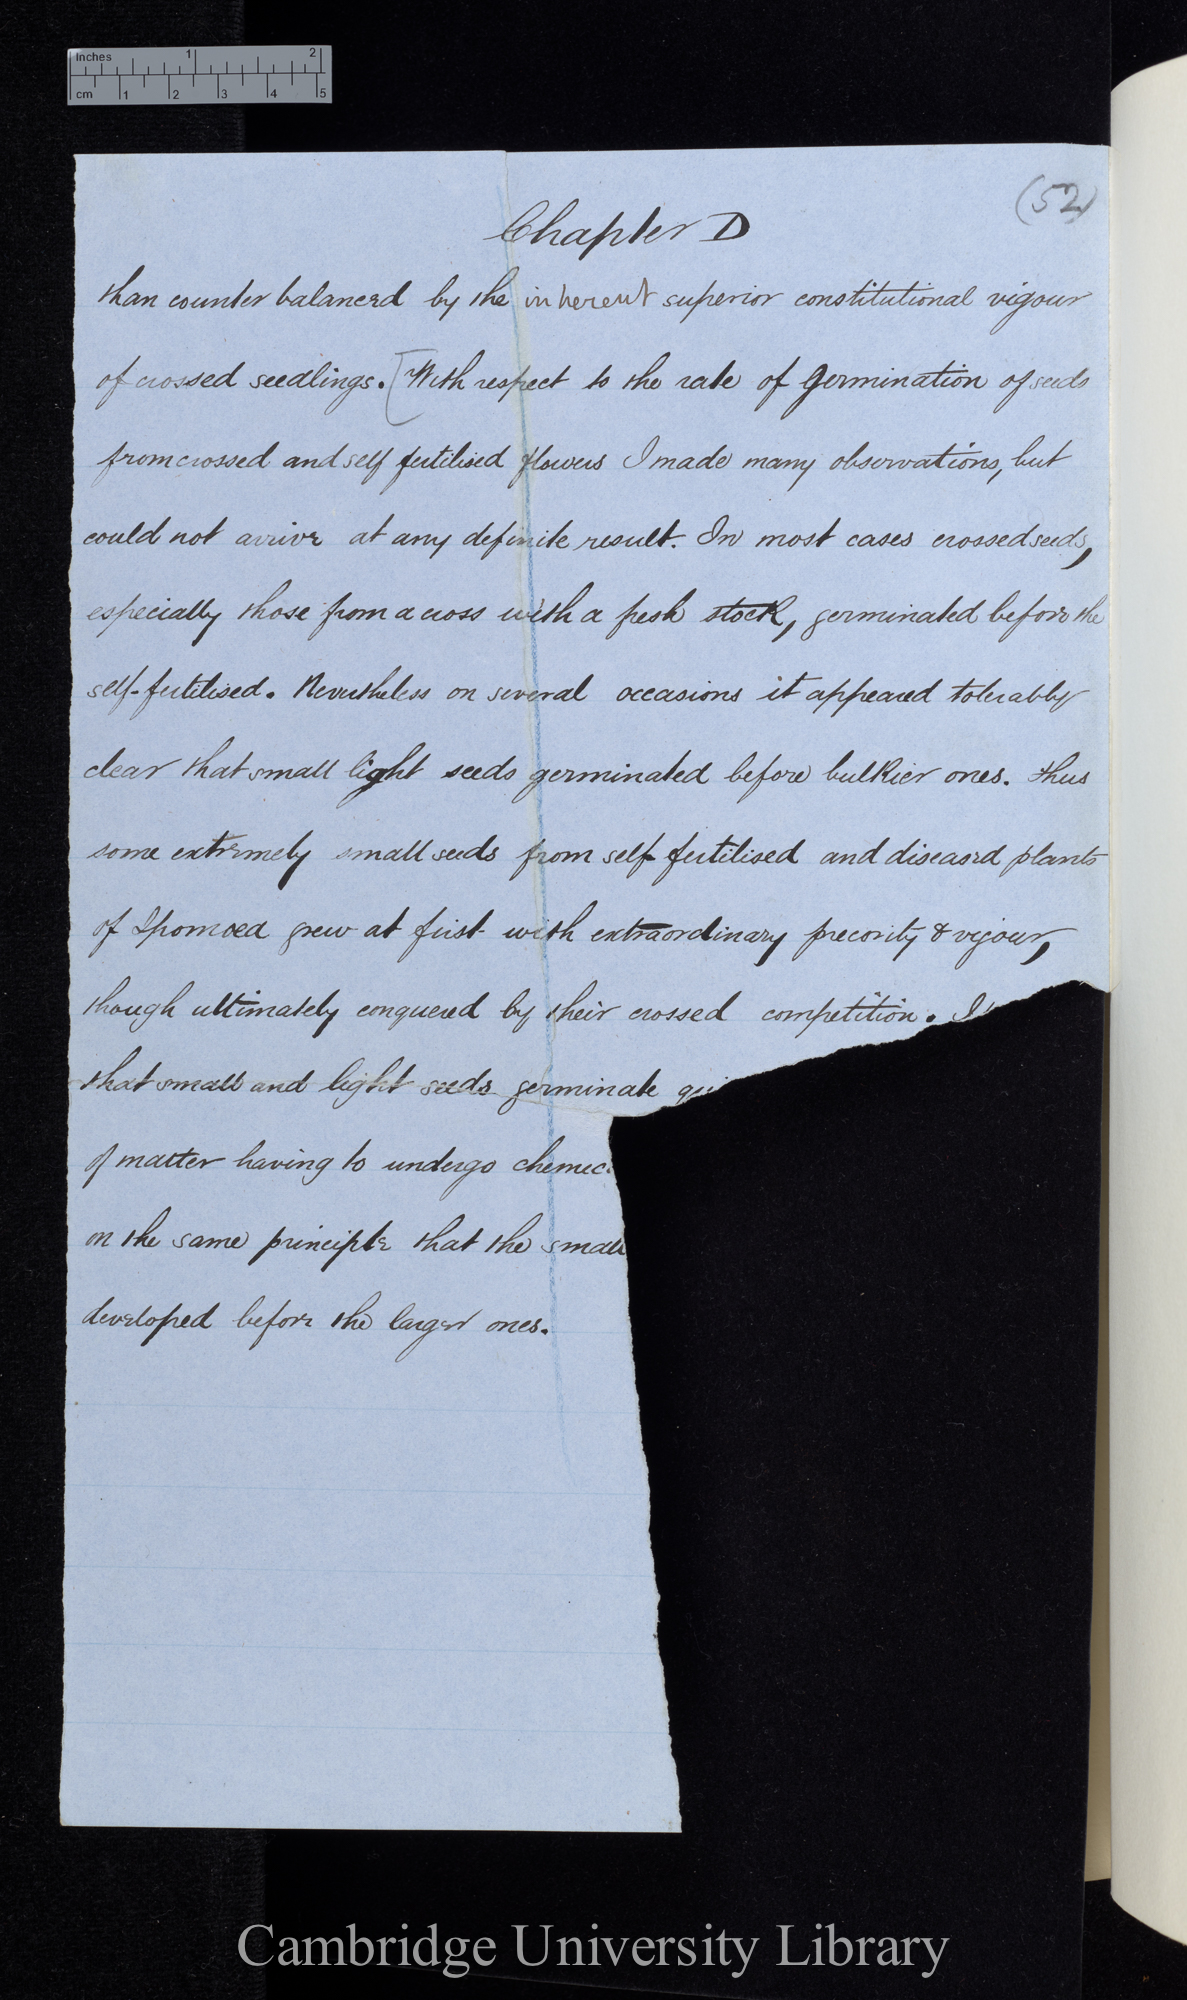 Inches 1 2
cm 1 2 3 4 5
(52)
Chapter D
than counter balanced by the inherent superior constitutional vigour
of crossed seedlings. [With respect to the rate of Germination of seeds
from crossed and self fertilised flowers I made many observations, but
could not arrive at any definite result. In most cases crossed seeds,
especially those from a cross with a fresh stock, germinated before the
self-fertilised. Nevertheless on several occasions it appeared tolerably
clear that small light seeds germinated before bulkier ones. thus
some extremely small seeds from self-fertilised and diseased plants
of Ipomoea grew at first with extraordinary precocity & vigour,
though ultimately conquered by their crossed competition. I
that small and light seeds germinate
of matter having to undergo chemic
on the same principle that the small
developed before the larger ones.
Cambridge University Library